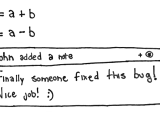 = a + b
= a - b
ohn added a note + @
Finally someone fixed this bug!
Nice job! :)